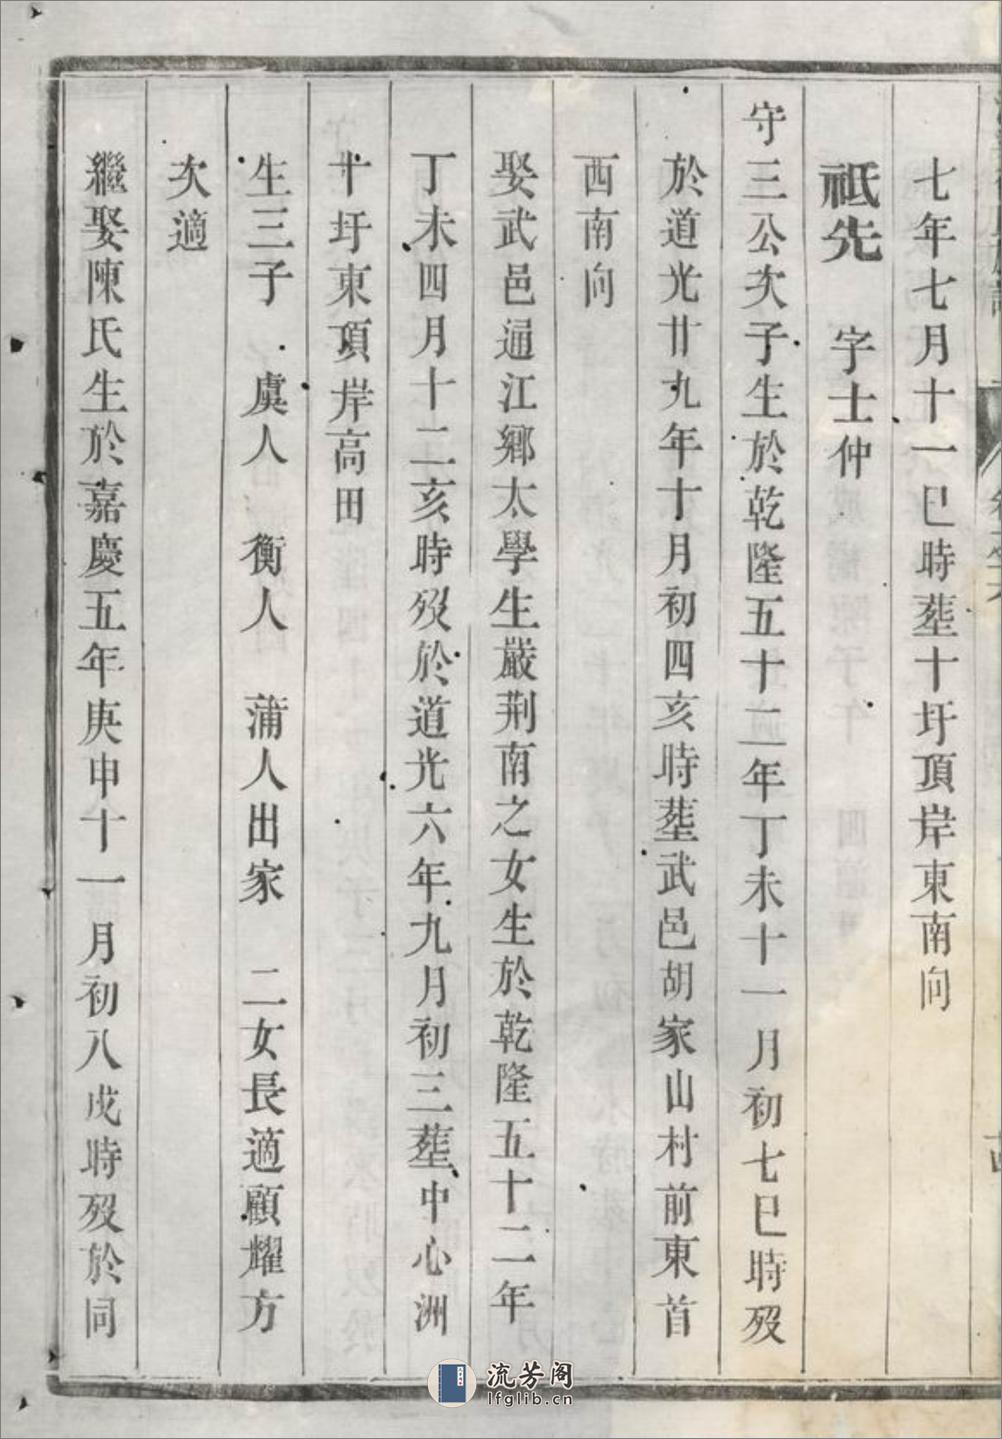 七年七月十一巳時塟十圩頂岸東南向
祗先　字士仲
守三公次子生於乾隆五十二年丁未十一月初七巳時歿
於道光廿九年十月初四亥時塟武邑胡家山村前東首
西南向
娶武邑通江鄉太學生嚴荆南之女生於乾隆五十二年
丁未四月十二亥時歿於道光六年九月初三塟中心洲
十圩東頂岸高田
生三子　虞人　衡人　蒲人出家　二女長適顧耀方
次適
繼娶陳氏生於嘉慶五年庚申十一月初八戌時歿於同
流芳阁
lfglib.cn